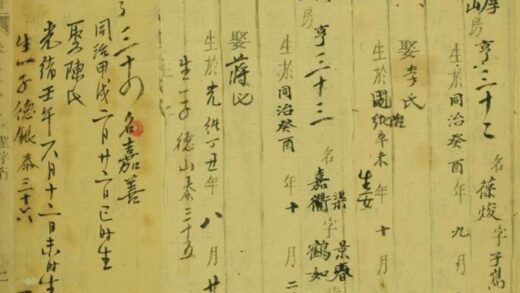 亨三十二 名葆焌字子嵩
生於同治癸酉年九月
娶李氏
生於同治辛未年十月
生女
亨三十三 名嘉衢字鶴如
渠景春
生於同治癸酉年十月二
娶蔣氏
生於光緒丁丑年八月廿
生一子德山泰三十五
三十四 名嘉善
同治甲戌二月廿二日巳時生
娶陳氏
光緒壬午八月十二日未時生
生一子德銀泰三十六